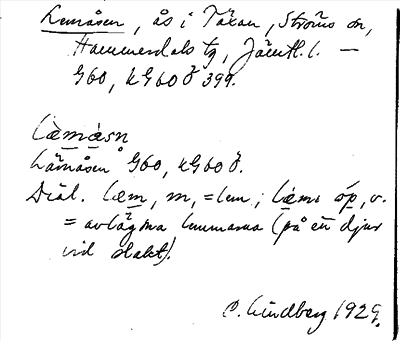 Lemåsen, ås i Täxan, Ströms sn,
Hammerdals tg, Jämtl. l. —
G60, KG60 Ö 399.
Læmåsn
Lämåsen G60, KG60 Ö.
Dial. læm, m, = lem; læma óp, v.
= avlägsna lemmarna (på en djur
vid slakt).
C. Lindberg 1929.